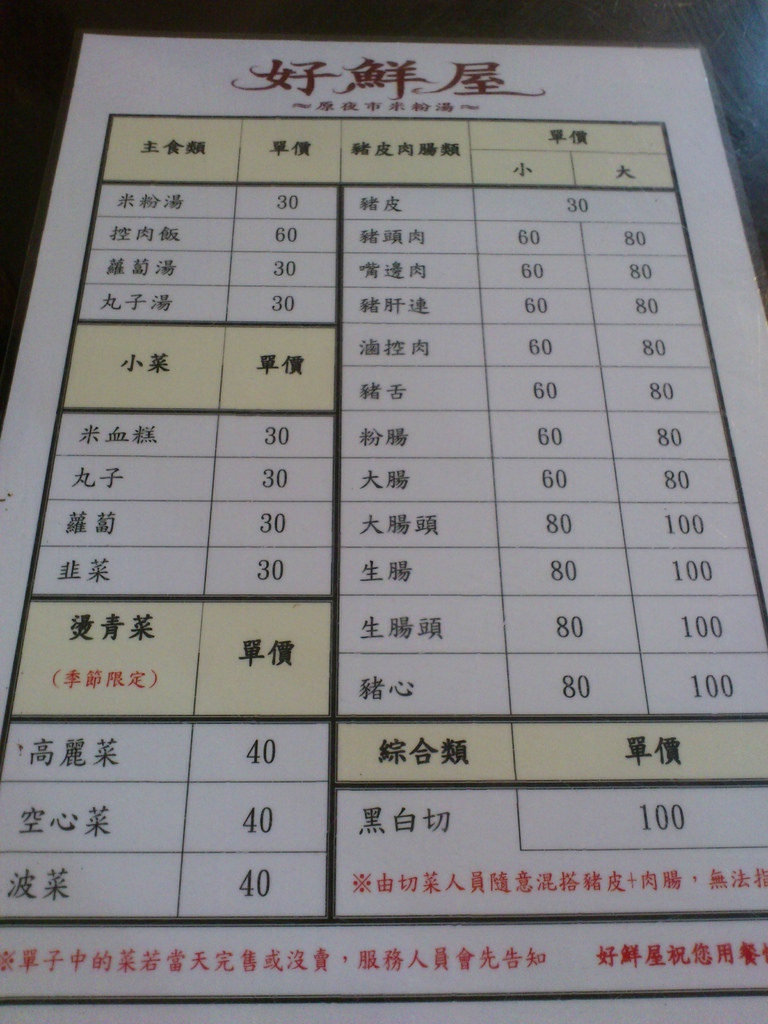 好鮮屋
~原夜市米粉湯~
主食類 單價 豬皮肉腸類 單價
小 大
米粉湯 30 豬皮 30
控肉飯 60 豬頭肉 60 80
蘿蔔湯 30 嘴邊肉 60 80
丸子湯 30 豬肝連 60 80
小菜 單價 滷控肉 60 80
豬舌 60 80
米血糕 30 粉腸 60 80
丸子 30 大腸 60 80
蘿蔔 30 大腸頭 80 100
韭菜 30 生腸 80 100
燙青菜 單價 生腸頭 80 100
(季節限定) 豬心 80 100
高麗菜 40 綜合類 單價
空心菜 40 黑白切 100
波菜 40 ※由切菜人員隨意混搭豬皮+肉腸，無法指
※單子中的菜若當天完售或沒賣，服務人員會先告知 好鮮屋祝您用餐